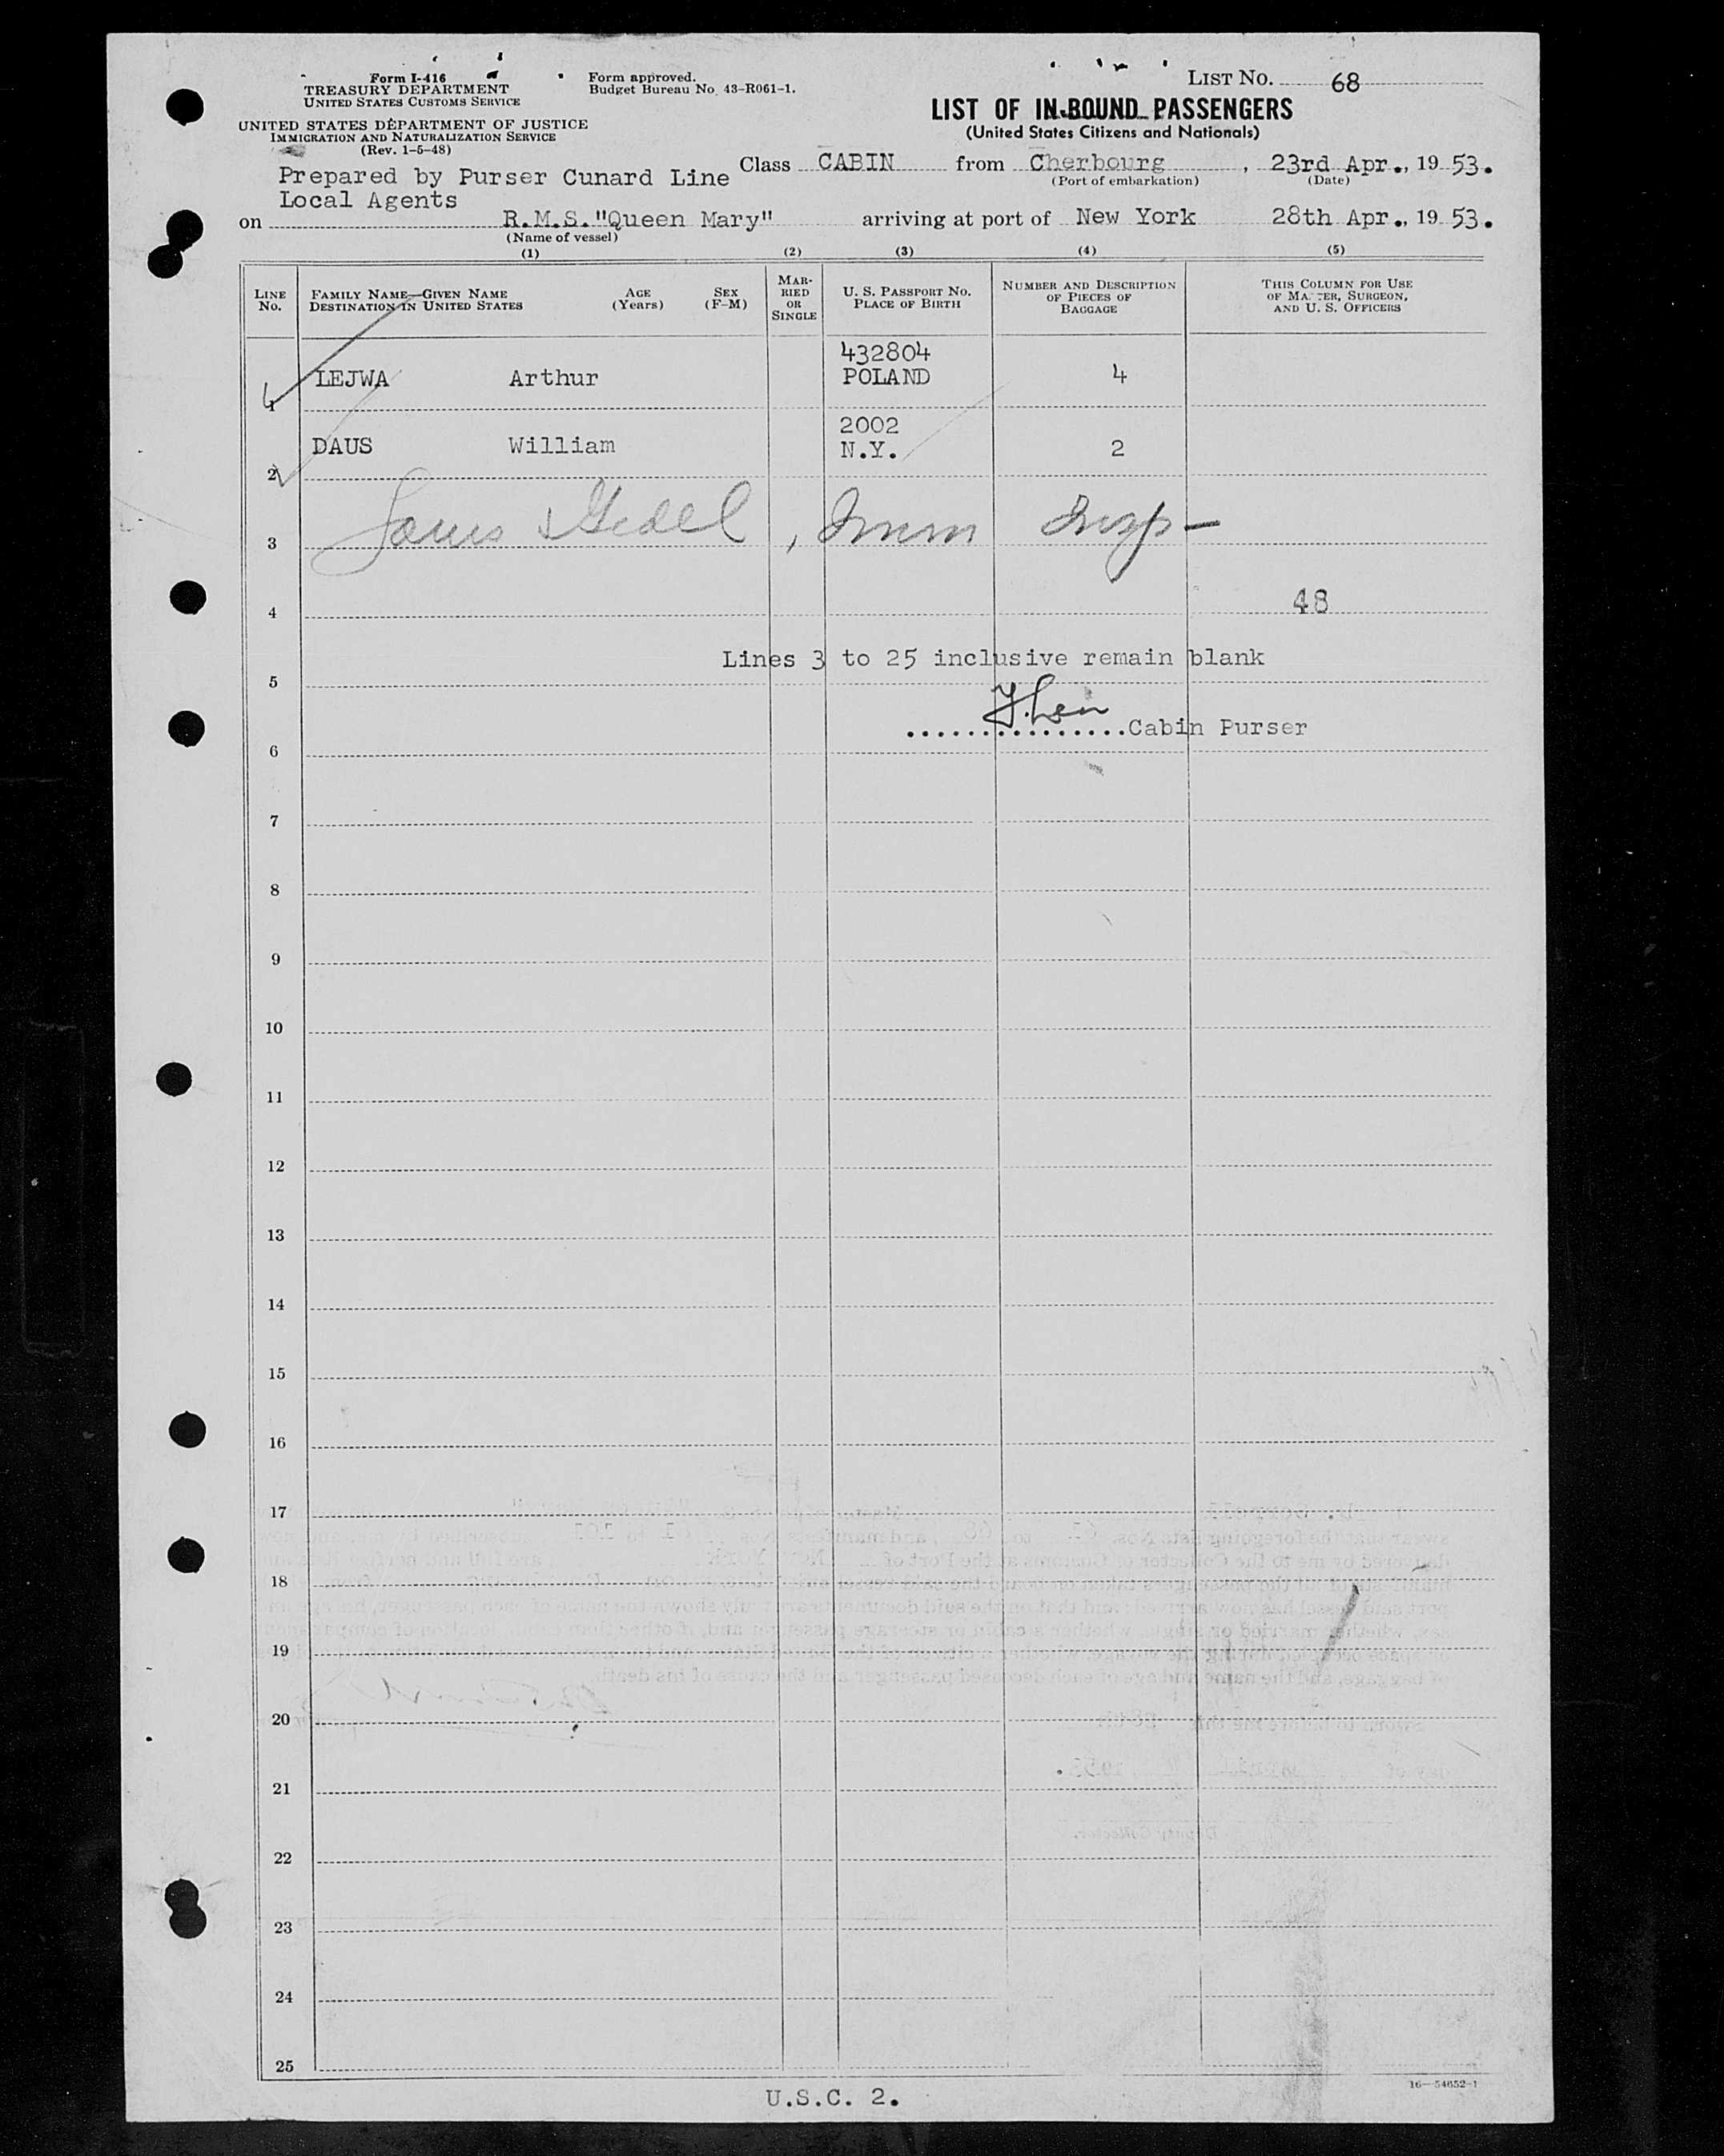 Form I-416
TREASURY DEPARTMENT
UNITED STATES CUSTOMS SERVICE
Form approved.
Budget Bureau No. 43-R061-1.
LIST NO. 68
UNITED STATES DEPARTMENT OF JUSTICE
IMMIGRATION AND NATURALIZATION SERVICE
(Rev. 1-5-48)
LIST OF IN-BOUND PASSENGERS
(United States Citizens and Nationals)
Prepared by Purser Cunard Line
Local Agents
Class CABIN from Cherbourg, 23rd Apr., 19 53.
(Port of embarkation) (Date)
on R.M.S."Queen Mary" arriving at port of New York 28th Apr., 19 53.
(Name of vessel)
(1) (2) (3) (4) (5)
LINE No.
FAMILY NAME—GIVEN NAME
DESTINATION IN UNITED STATES
AGE (Years)
SEX (F-M)
MARRIED OR SINGLE
U. S. PASSPORT NO.
PLACE OF BIRTH
NUMBER AND DESCRIPTION OF PIECES OF BAGGAGE
THIS COLUMN FOR USE OF MASTER, SURGEON, AND U. S. OFFICERS
432804
1 LEJWA Arthur POLAND 4
2002
2 DAUS William N.Y. 2
3 Imm Insp-
4 48
Lines 3 to 25 inclusive remain blank
5
...............Cabin Purser
6
7
8
9
10
11
12
13
14
15
16
17
18
19
20
21
22
23
24
25
16—54652-1
U.S.C. 2.